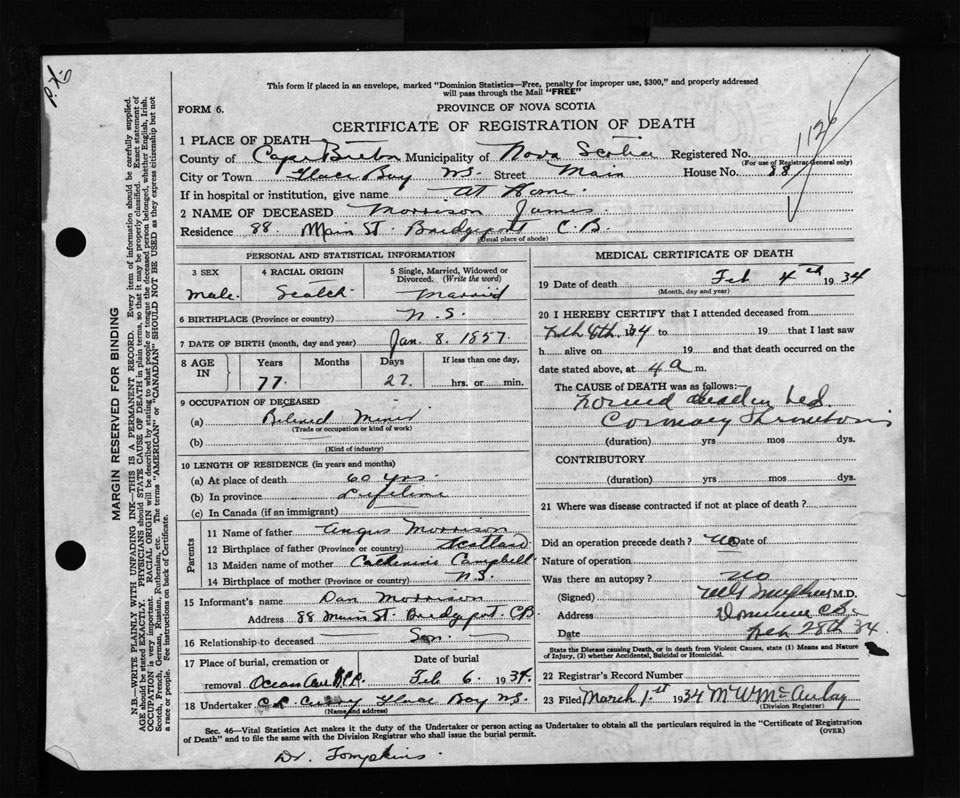 This form if placed in an envelope, marked "Dominion Statistics—Free, penalty for improper use, $300," and properly addressed
will pass through the Mail "FREE"
FORM 6.
PROVINCE OF NOVA SCOTIA
CERTIFICATE OF REGISTRATION OF DEATH
1126
1 PLACE OF DEATH
County of Cape Breton Municipality of Nova Scotia Registered No.
(For use of Registrar General only)
City or Town Glace Bay N.S. Street Main House No. 88
If in hospital or institution, give name At Home.
2 NAME OF DECEASED Morrison James
Residence 88 Main St. Bridgeport C.B.
(Usual place of abode)
PERSONAL AND STATISTICAL INFORMATION
3 SEX 4 RACIAL ORIGIN 5 Single, Married, Widowed or Divorced. (Write the word)
Male. Scotch Married
6 BIRTHPLACE (Province or country) N.S.
7 DATE OF BIRTH (month, day and year) Jan. 8. 1857.
8 AGE IN Years Months Days If less than one day,
77. 27. hrs. or min.
9 OCCUPATION OF DECEASED
(a) Retired Miner
(Trade or occupation or kind of work)
(b)
(Kind of industry)
10 LENGTH OF RESIDENCE (in years and months)
(a) At place of death 60 yrs.
(b) In province Lifetime
(c) In Canada (if an immigrant)
Parents
11 Name of father Angus Morrison
12 Birthplace of father (Province or country) Scotland
13 Maiden name of mother Catherine Campbell
14 Birthplace of mother (Province or country) N.S.
15 Informant's name Dan Morrison
Address 88 Main St. Bridgeport. CB.
16 Relationship to deceased Son.
17 Place of burial, cremation or removal Date of burial
Feb 6. 1934.
18 Undertaker Curry Glace Bay N.S.
(Name and address)
MEDICAL CERTIFICATE OF DEATH
19 Date of death Feb 4th 1934
(Month, day and year)
20 I HEREBY CERTIFY that I attended deceased from
Feb 4th 34 to 19 that I last saw
h alive on 19 and that death occurred on the
date stated above, at 4 a m.
The CAUSE OF DEATH was as follows:—
Found dead in bed
Coronary Thrombosis
(duration) yrs mos dys.
CONTRIBUTORY
(duration) yrs mos dys.
21 Where was disease contracted if not at place of death?
Did an operation precede death? No Date of
Nature of operation
Was there an autopsy? No
(Signed) M.D.
Address Dominion C.B.
Date Feb 28th 34
State the Disease causing Death, or in death from Violent Causes, state (1) Means and Nature
of Injury, (2) whether Accidental, Suicidal or Homicidal.
22 Registrar's Record Number
23 Filed March 1st 1934 M W McAulay
(Division Registrar)
Sec. 46—Vital Statistics Act makes it the duty of the Undertaker or person acting as Undertaker to obtain all the particulars required in the "Certificate of Registration
of Death" and to file the same with the Division Registrar who shall issue the burial permit.
(OVER)
Dr. Tompkins.
MARGIN RESERVED FOR BINDING
N.B.—WRITE PLAINLY WITH UNFADING INK—THIS IS A PERMANENT RECORD. Every item of information should be carefully supplied.
AGE should be stated EXACTLY. PHYSICIANS should STATE CAUSE OF DEATH in plain terms, so that it may be properly classified. Exact statement of
OCCUPATION is very important. RACIAL ORIGIN will be described by stating to what people or tongue the deceased person belonged, whether English, Irish,
Scotch, French, German, Russian, Ruthenian, etc. The terms "AMERICAN" or "CANADIAN" SHOULD NOT BE USED as they express citizenship but not
a race or people. See instructions on back of Certificate.